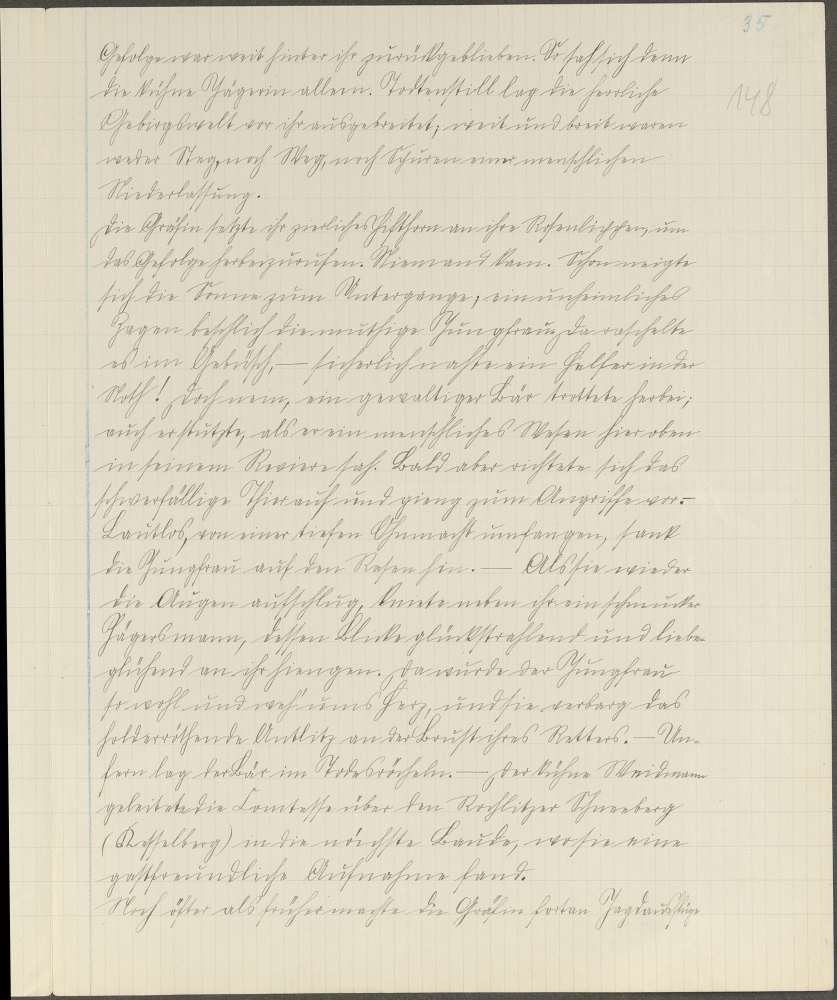 35
148
Gefolge war weit hinter ihr zurückgeblieben. So sah sich denn
die kühne Jägerin allein. Todtenstill lag die herrliche
Gebirgswelt vor ihr ausgebreitet; weit und breit waren
weder Steg, noch Weg, noch Spuren einer menschlichen
Niederlassung.
Die Gräfin setzte ihr zierliches Hifthorn an ihre Rosenlippchen, um
das Gefolge herbeizurufen. Niemand kam. Schon neigte
sich die Sonne zum Untergange, ein unheimliches
Zagen beschlich die muthige Jungfrau; da raschelte
es im Gebüsch, — sicherlich nahte ein Helfer in der
Noth! Doch nein, ein gewaltiger Bär trottete herbei;
auch er stutzte, als er ein menschliches Wesen hier oben
in seinem Reviere sah. Bald aber richtete sich das
schwerfällige Thier auf und gieng zum Angriffe vor. –
Lautlos, von einer tiefen Ohnmacht umfangen, sank
die Jungfrau auf den Rasen hin. — Als sie wieder
die Augen aufschlug, kniete neben ihr ein schmucker
Jägersmann, dessen Blicke glückstrahlend und liebe-
glühend an ihr hiengen. Da wurde der Jungfrau
so wohl und weh' ums Herz, und sie verbarg das
holderröthende Antlitz an der Brust ihres Retters. — Un-
fern lag der Bär im Todesröcheln. — Der kühne Weidmann
geleitete die Comtesse über den Rochlitzer Schneeberg
(Kesselberg) in die nächste Baude, wo sie eine
gastfreundliche Aufnahme fand.
Noch öfter als früher machte die Gräfin fortan Jagdausflüge